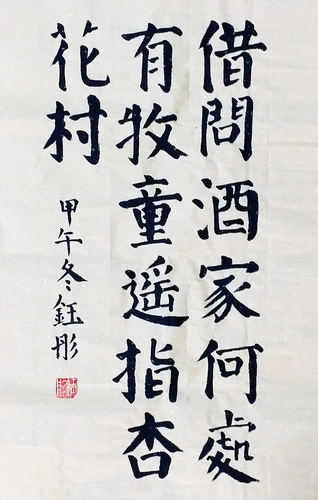 借問酒家何處
有牧童遥指杏
花村
甲午冬鈺彤